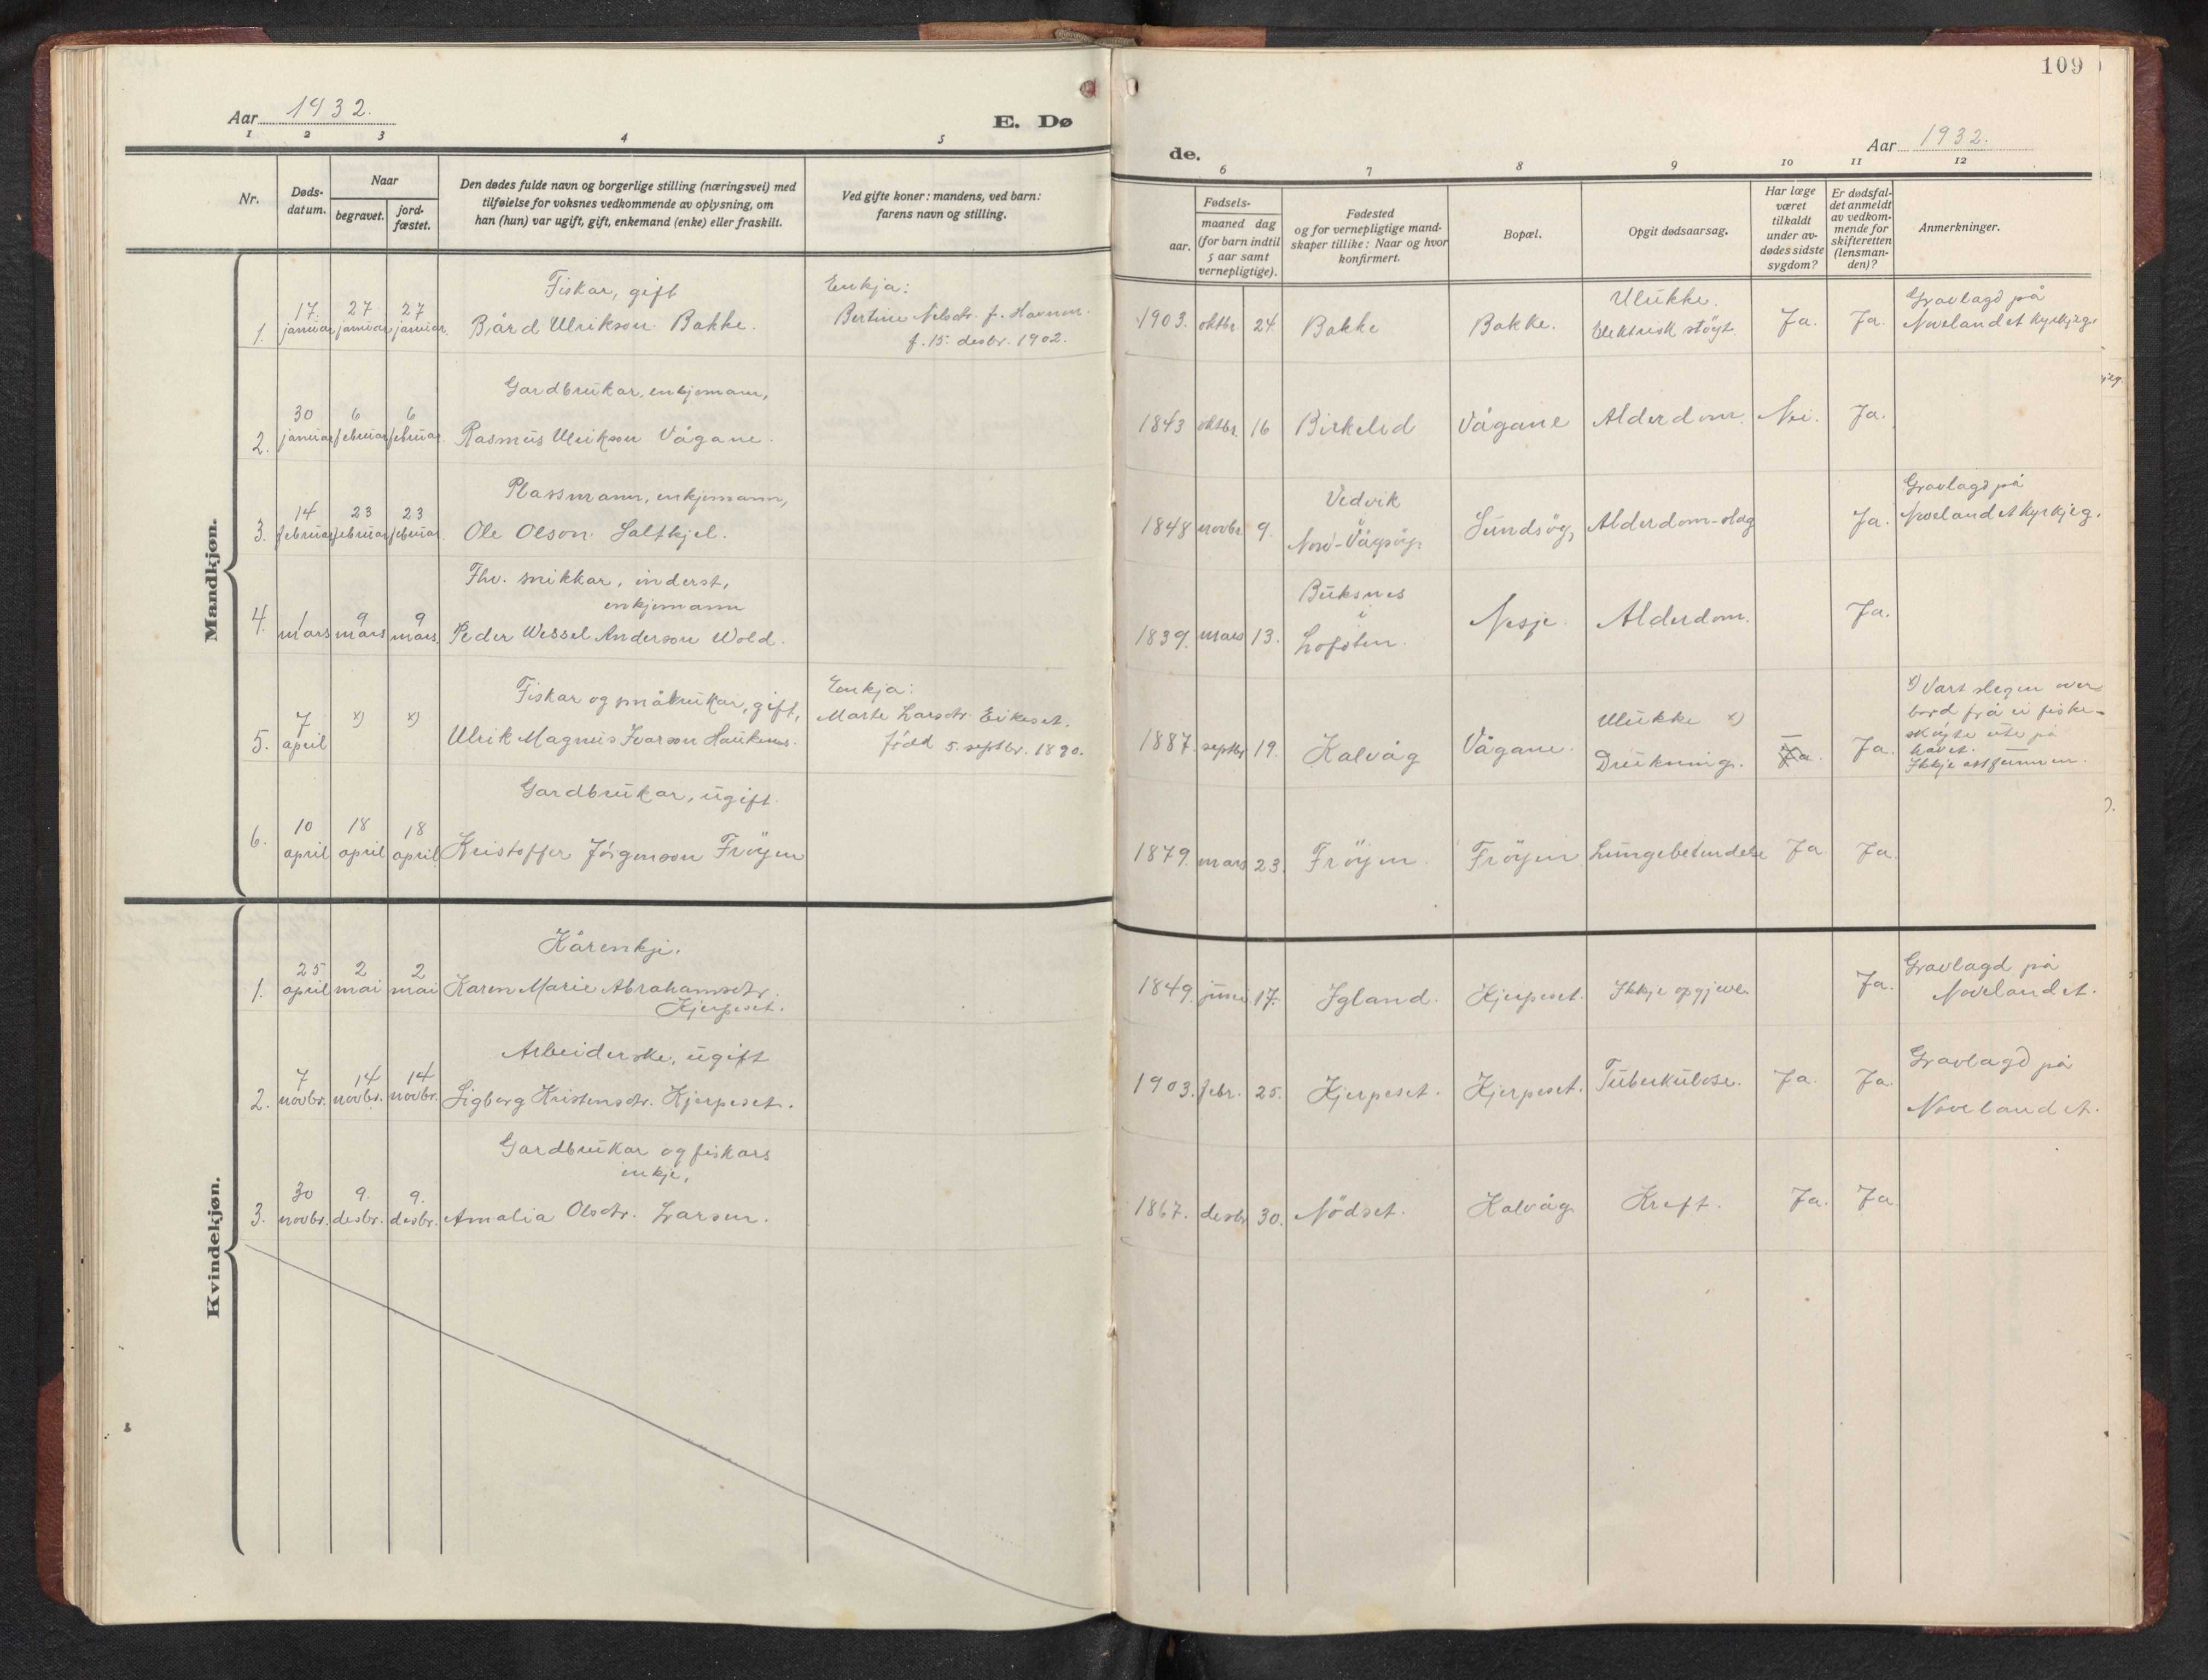 109
Aar 1932.
E. Dø
1 2 3 4 5
Nr.
Døds-
datum.
Naar
begravet.
jord-
fæstet.
Den dødes fulde navn og borgerlige stilling (næringsvei) med
tilføielse for voksnes vedkommende av oplysning, om
han (hun) var ugift, gift, enkemand (enke) eller fraskilt.
Ved gifte koner: mandens, ved barn:
farens navn og stilling.
Mandkjøn.
Fiskar, gift
Enkja:
17. 27 27
januar januar januar.
1. Bård Ulrikson Bakke.
Bertine Nelsdtr. f. Havnen.
f. 15. desbr. 1902.
Gardbrukar, enkjemann,
30 6 6
januar februar februar.
2. Rasmus Ulrikson Vågane.
Plassmann, enkjemann,
14 23 23
februar februar februar.
3. Ole Olson Saltkjel.
Fhv. snikkar, inderst,
enkjemann
1 9 9
mars mars mars.
4. Peder Wessel Anderson Wold.
Fiskar og småbrukar, gift,
Enkja:
Marte Larsdtr. Eikeset.
7 x) x)
april
5. Ulrik Magnus Ivarson Haukenes.
född 5. septbr. 1890.
Gardbrukar, ugift.
10 18 18
april april april
6. Kristoffer Jörgenson Fröyen
Kvindekjøn.
Kårenkje.
25 2 2
april mai mai
1. Karen Marie Abrahamsdtr.
Kjerpeset.
Arbeiderske, ugift
7 14 14
novbr. novbr. novbr.
2. Sigborg Kristensdtr. Kjerpeset.
Gardbrukar og fiskars
enkje,
30 9. 9.
novbr. desbr. desbr.
3. Amalia Olsdtr. Larsen.
de.
Aar 1932.
6 7 8 9 10 11 12
Fødsels-
aar.
maaned dag
(for barn indtil
5 aar samt
vernepligtige).
Fødested
og for vernepligtige mand-
skaper tillike: Naar og hvor
konfirmert.
Bopæl.
Opgit dødsaarsag.
Har læge
været
tilkaldt
under av-
dødes sidste
sygdom?
Er dødsfal-
det anmeldt
av vedkom-
mende for
skifteretten
(lensman-
den)?
Anmerkninger.
Ulukke.
Gravlagd på
1903. oktbr. 24. Bakke Bakke. Elektrisk stöyt. Ja. Ja. Novelandet kyrkjeg.
1843 oktbr. 16 Birkelid Vågane Alderdom. Nei. Ja.
Vedvik
Gravlagd på
1848 novbr. 9. Nord-Vågsöy. Sundsöy, Alderdom-slag Ja. Novelandet kyrkjeg.
Buksnes
i
1839. mars 13. Lofoten. Nesje. Alderdom. Ja.
Ulukke x)
1887. septbr. 19. Kalvåg Vågane. Drukning. Ja. Ja.
x) Vart slegen over-
bord frå ei fiske-
sköyte ute på
havet.
Ikkje attfunnen.
1879. mars 23. Fröyen. Fröyen Lungebetendelse Ja. Ja.
Gravlagd på
1849. juni 17. Igland. Kjerpeset. Ikkje opgjeve. Ja. Novelandet.
Gravlagd på
1903. febr. 25. Kjerpeset. Kjerpeset. Tuberkulose. Ja. Ja.
Novelandet.
1867. desbr. 30. Nödset. Kalvåg Kreft. Ja. Ja